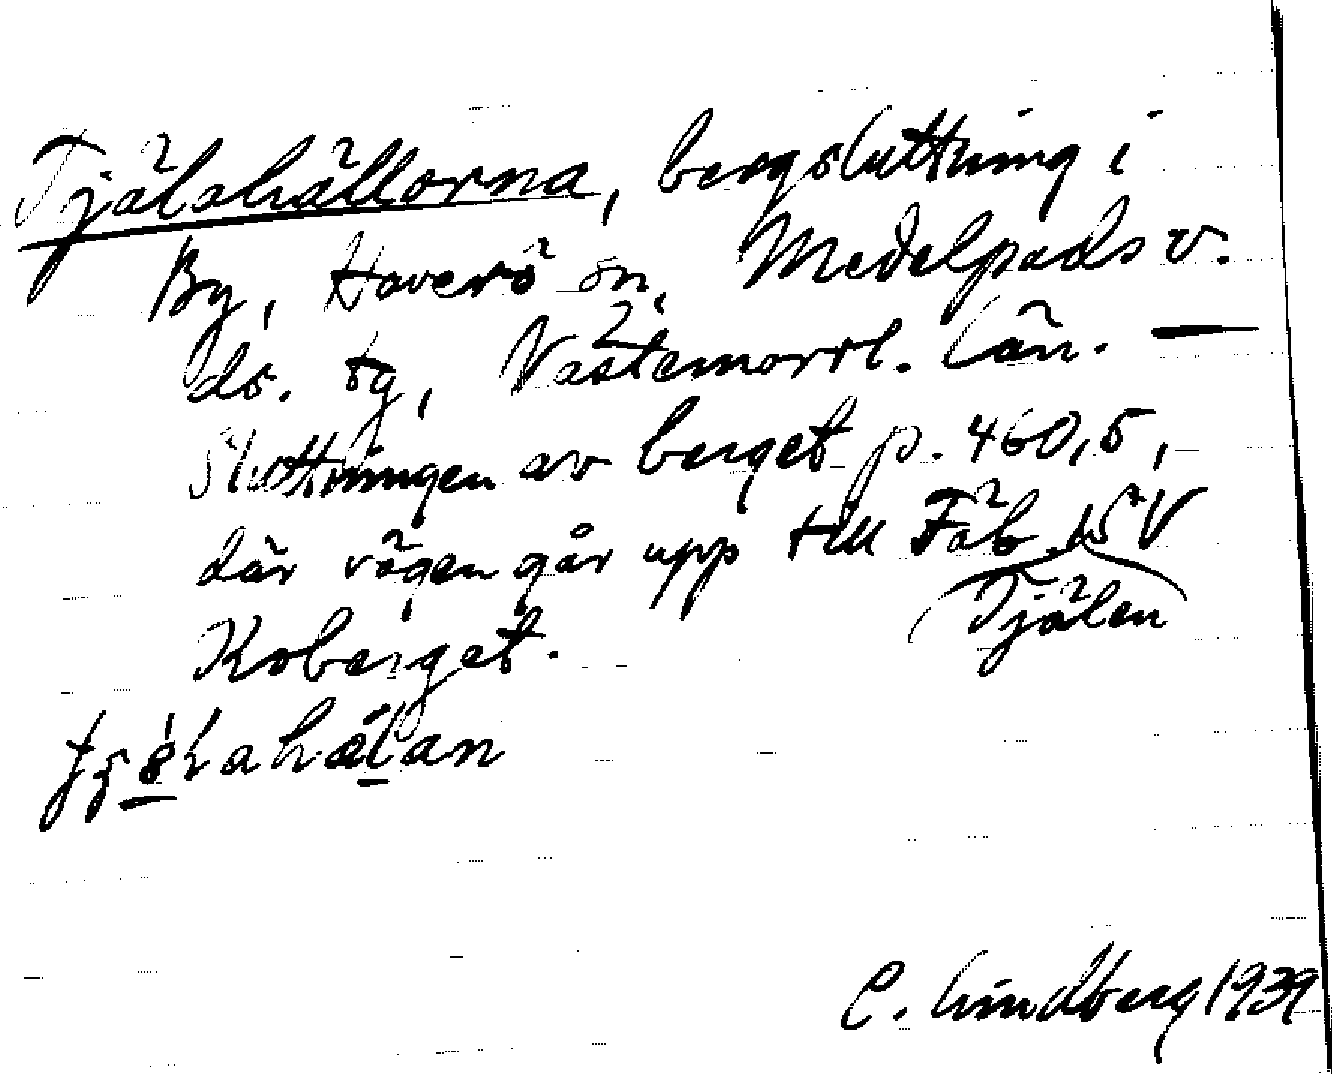 Tjälahällorna, bergsluttning i
By, Haverö sn, Medelpads v.
ds. tg, Västernorrl. län. —
Sluttningen av berget p. 460,5,
där vägen går upp till Fäb. SV
Tjälen
Koberget.
C. Lindberg 1939